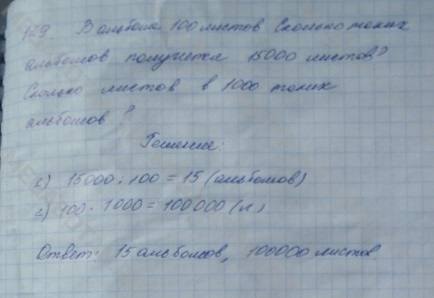 129 В альбоме 100 листов Сколько таких
альбомов получится 15000 листов?
Сколько листов в 1000 таких
альбомов?
Решение:
1) 15000 : 100 = 15 (альбомов)
2) 100 · 1000 = 100000 (л)
Ответ: 15 альбомов, 100000 листов